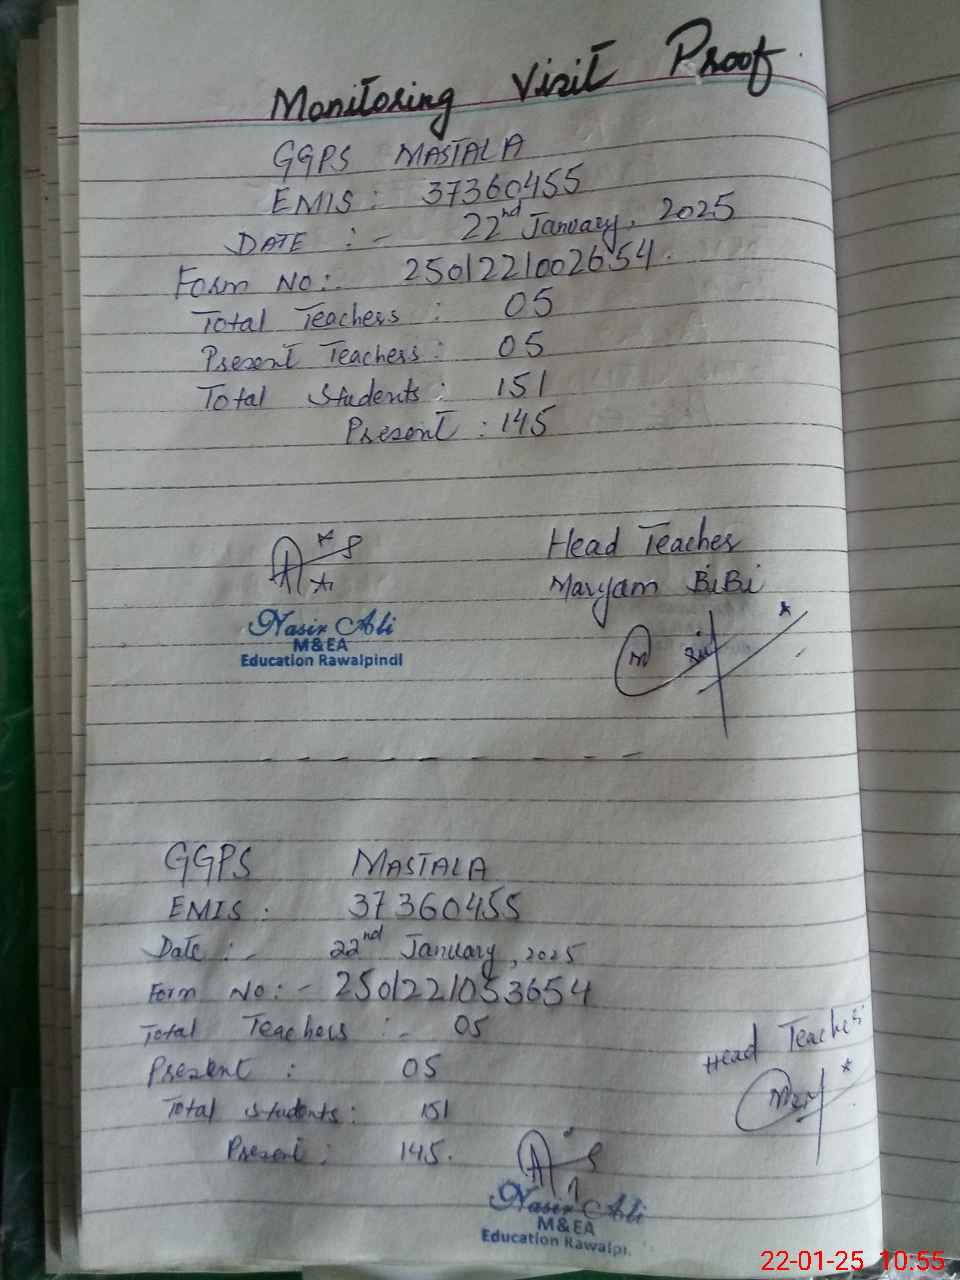 Monitoring Visit Proof
GGPS MASTALA
EMIS: 37360455
DATE :- 22nd January, 2025
Form No:. 2501221002654.
Total Teachers : 05
Present Teachers : 05
Total Students : 151
Present : 145
Head Teacher
Maryam BiBi
Nasir Ali
M&EA
Education Rawalpindi
GGPS MASTALA
EMIS : 37360455
Date :- 22nd January, 2025
Form No:- 2501221053654
Total Teachers :- 05
Present : 05
Total students: 151
Present : 145.
Head Teacher
Nasir Ali
M&EA
Education Rawalpi
22-01-25 10:55